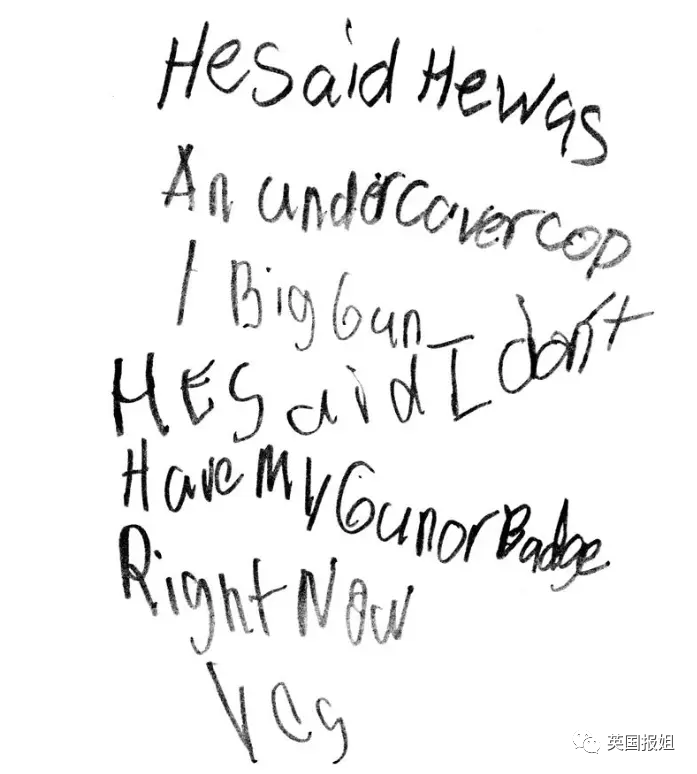 He Said He was
An undercover cop
1 Big Gun
HE Said I don't
Have My Gun or Badge.
Right Now
英国报姐